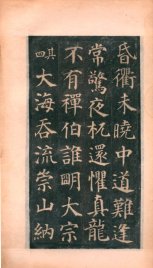 昏衢未曉中道難逢
常驚夜杌還懼真龍
不有禪伯誰明大宗
其四大海吞流崇山納